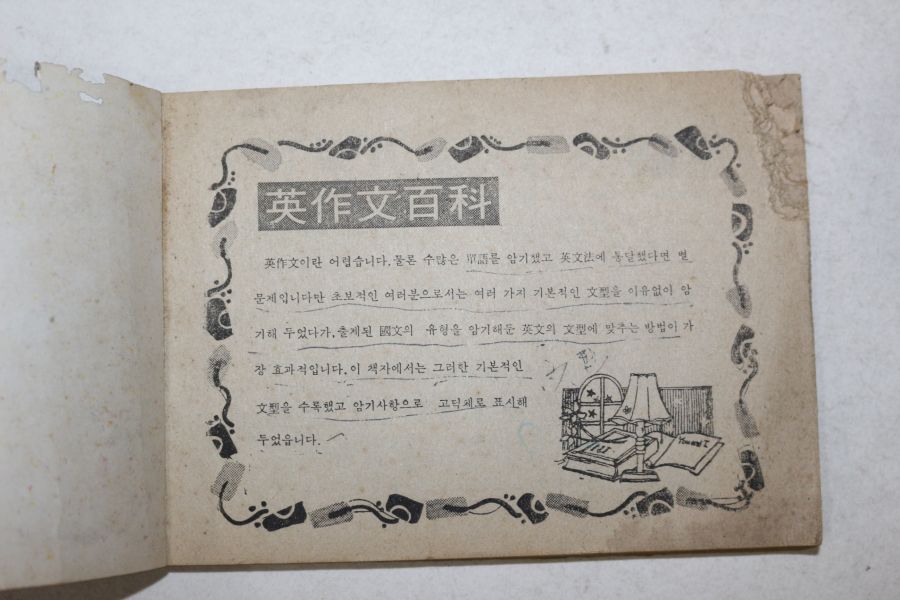 英作文百科
英作文이란 어렵습니다. 물론 수많은 單語를 암기했고 英文法에 통달했다면 별
문제입니다만 초보적인 여러분으로서는 여러 가지 기본적인 文型을 이유없이 암
기해 두었다가, 출제된 國文의 유형을 암기해둔 英文의 文型에 맞추는 방법이 가
장 효과적입니다. 이 책자에서는 그러한 기본적인
文型을 수록했고 암기사항으로 고딕체로 표시해
두었읍니다.